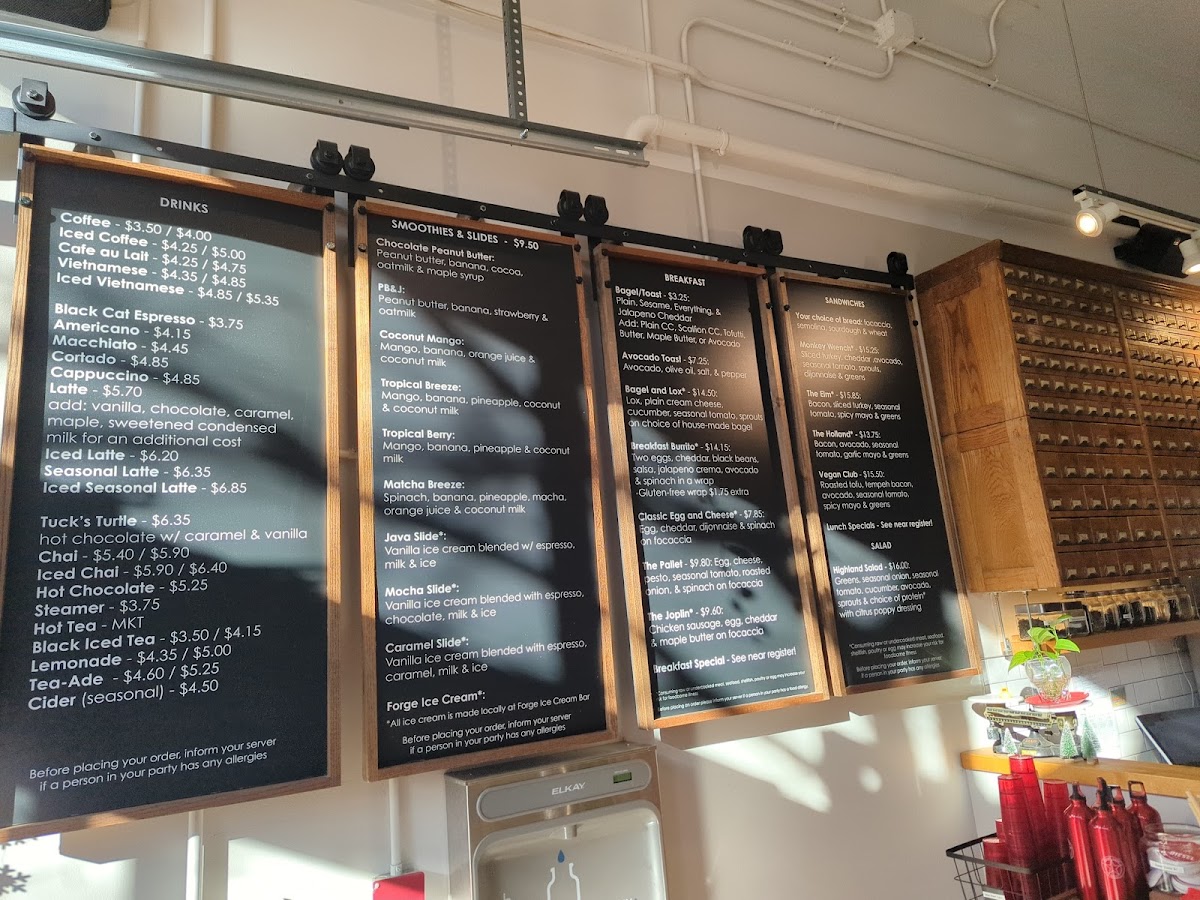 DRINKS
Coffee - $3.50 / $4.00
Iced Coffee - $4.25 / $5.00
Cafe au Lait - $4.25 / $4.75
Vietnamese - $4.35 / $4.85
Iced Vietnamese - $4.85 / $5.35
Black Cat Espresso - $3.75
Americano - $4.15
Macchiato - $4.45
Cortado - $4.85
Cappuccino - $4.85
Latte - $5.70
add: vanilla, chocolate, caramel,
maple, sweetened condensed
milk for an additional cost
Iced Latte - $6.20
Seasonal Latte - $6.35
Iced Seasonal Latte - $6.85
Tuck's Turtle - $6.35
hot chocolate w/ caramel & vanilla
Chai - $5.40 / $5.90
Iced Chai - $5.90 / $6.40
Hot Chocolate - $5.25
Steamer - $3.75
Hot Tea - MKT
Black Iced Tea - $3.50 / $4.15
Lemonade - $4.35 / $5.00
Tea-Ade - $4.60 / $5.25
Cider (seasonal) - $4.50
Before placing your order, inform your server
if a person in your party has any allergies
SMOOTHIES & SLIDES - $9.50
Chocolate Peanut Butter:
Peanut butter, banana, cocoa,
oatmilk & maple syrup
PB&J:
Peanut butter, banana, strawberry &
oatmilk
Coconut Mango:
Mango, banana, orange juice &
coconut milk
Tropical Breeze:
Mango, banana, pineapple, coconut
& coconut milk
Tropical Berry:
Mango, banana, pineapple & coconut
milk
Matcha Breeze:
Spinach, banana, pineapple, macha,
orange juice & coconut milk
Java Slide*:
Vanilla ice cream blended w/ espresso,
milk & ice
Mocha Slide*:
Vanilla ice cream blended with espresso,
chocolate, milk & ice
Caramel Slide*:
Vanilla ice cream blended with espresso,
caramel, milk & ice
Forge Ice Cream*:
*All ice cream is made locally at Forge Ice Cream Bar
Before placing your order, inform your server
if a person in your party has any allergies
BREAKFAST
Bagel/Toast - $3.25:
Plain, Sesame, Everything, &
Jalapeno Cheddar
Add: Plain CC, Scallion CC, Tofutti,
Butter, Maple Butter, or Avocado
Avocado Toast - $7.25:
Avocado, olive oil, salt, & pepper
Bagel and Lox* - $14.50:
Lox, plain cream cheese,
cucumber, seasonal tomato, sprouts
on choice of house-made bagel
Breakfast Burrito* - $14.15:
Two eggs, cheddar, black beans,
salsa, jalapeno crema, avocado
& spinach in a wrap
-Gluten-free wrap $1.75 extra
Classic Egg and Cheese* - $7.85:
Egg, cheddar, dijonnaise & spinach
on focaccia
The Pallet - $9.80: Egg, cheese,
pesto, seasonal tomato, roasted
onion, & spinach on focaccia
The Joplin* - $9.60:
Chicken sausage, egg, cheddar
& maple butter on focaccia
Breakfast Special - See near register!
*Consuming raw or undercooked meat, seafood, shellfish, poultry or egg may increase your
risk for foodborne illness
Before placing an order please inform your server if a person in your party has a food allergy
SANDWICHES
Your choice of bread: focaccia,
semolina, sourdough & wheat
Monkey Wrench* - $15.25:
Sliced turkey, cheddar, avocado,
seasonal tomato, sprouts,
dijonnaise & greens
The Elm* - $15.85:
Bacon, sliced turkey, seasonal
tomato, spicy mayo & greens
The Holland* - $13.75:
Bacon, avocado, seasonal
tomato, garlic mayo & greens
Vegan Club - $15.50:
Roasted tofu, tempeh bacon,
avocado, seasonal tomato,
spicy mayo & greens
Lunch Specials - See near register!
SALAD
Highland Salad - $16.00:
Greens, seasonal onion, seasonal
tomato, cucumber, avocado,
sprouts & choice of protein*
with citrus poppy dressing
*Consuming raw or undercooked meat, seafood,
shellfish, poultry or egg may increase your risk for
foodborne illness
Before placing your order, inform your server
if a person in your party has any allergies
ELKAY